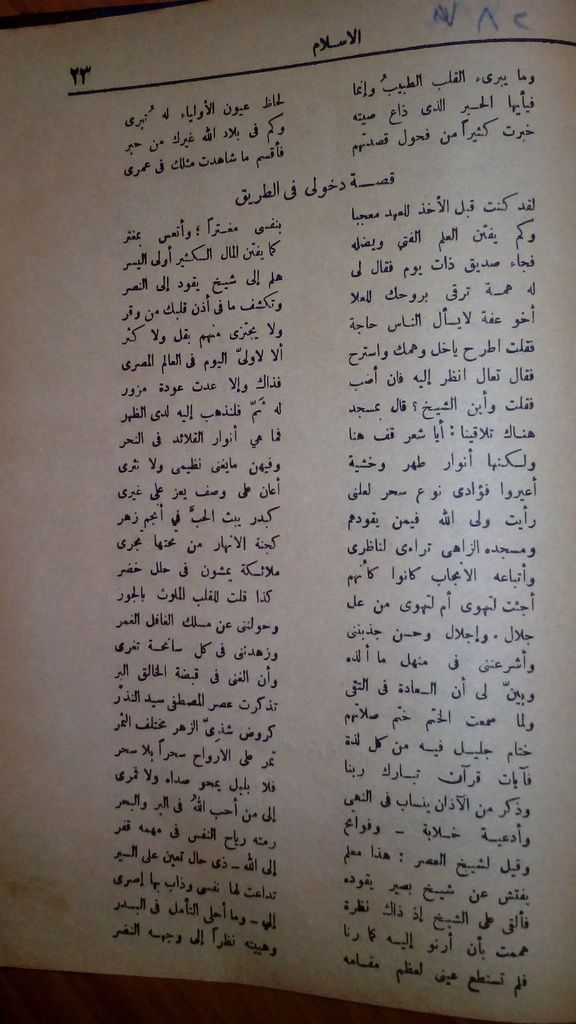 الاسلام
٢٣
وما يبرىء القلب الطبيبُ وإنما لحاظ عيون الأولياء له تُبرى
فيأيها الحبر الذى ذاع صيته وكم فى بلاد الله غيرك من حبر
خبرت كثيراً من فحول قصدتهم فأقسم ما شاهدت مثلك فى عمرى
قصة دخولى فى الطريق
لقد كنت قبل الأخذ للعهد معجبا بنفسى مغتراً ؛ وأتعس بمغتر
وكم يفتن العلم الفتى ويضله كما يفتن المال الكثير أولى اليسر
فجاء صديق ذات يوم فقال لى هلم إلى شيخ يقود إلى النصر
له همة ترقى بروحك للعلا وتكشف ما فى أذن قلبك من وقر
أخو عفة لايسأل الناس حاجة ولا يجتزى منهم بقل ولا كثر
فقلت اطرح ياخل وهمك واسترح ألا لاولىّ اليوم فى العالم المصرى
فقال تعال انظر إليه فان أضب فذاك وإلا عدت عودة مزور
فقلت وأين الشيخ ؟ قال بمسجد له ثَمّ فلنذهب إليه لدى الظهر
هناك تلاقينا : أيا شعر قف هنا فما هي أنوار القلائد فى النحر
ولكنها أنوار طهر وخشية وفيهن مايغنى نظيمى ولا نثرى
أعيروا فؤادى نوع سحر لعلنى أعان على وصف يعز على غيرى
رأيت ولى الله فيمن يقودهم كبدر يبث الحبَّ في أنجم زهر
ومسجده الزاهى تراءى لناظرى كجنة الانهار من تحتها تجرى
وأتباعه الانجاب كانوا كأنهم ملائكة يمشون فى حلل خضر
أجئت لتهوى أم لتهوى من عل كذا قلت للقلب الملوث بالجور
جلال . وإجلال وحسن جذبننى وحولننى عن مسلك الغافل الغمر
وأشرعننى فى منهل ما ألذه وزهدننى فى كل سانحة تغرى
وبينّ لى أن السعادة فى التقى وأن الغنى فى قبضة الخالق البر
ولما سمعت الختم ختم صلاتهم تذكرت عصر المصطفى سيد النذر
ختام جليل فيه من كل لذة كروض شذىّ الزهر مختلف الثمر
فآيات قرآن تبارك ربنا تمر على الارواح سحراً بلا سحر
وذكر من الآذان ينساب فى النهى فلا بلبل يمحو صداه ولا قمرى
وأدعية خلابة ــ وفواتح إلى من أحب اللهُ فى البر والبحر
وقيل لشيخ العصر : هذا معلم رمته رياح النفس فى مهمه قفر
يفتش عن شيخ بصير يقوده إلى الله ــ ذى حال تعين على السير
فألقى على الشيخ إذ ذاك نظرة تداعت لها نفسى وذاب بها إصرى
هممت بأن أرنو إليه كما رنا إلي ــ وما أحلى التأمل فى البدر
فلم تستطع عينى لعظم مقامه وهيبته نظراً إلى وجهه النضر